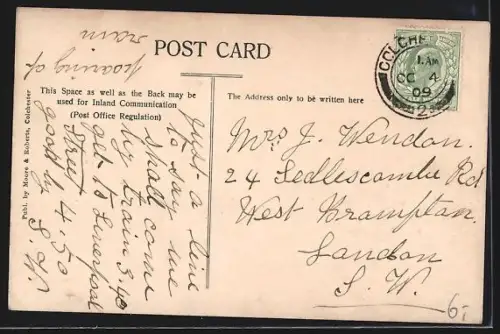 POST CARD
This Space as well as the Back may be
used for Inland Communication
(Post Office Regulation)
The Address only to be written here
Publ. by Moore & Roberts, Colchester
COLCHE
1. AM
OC 4
09
2
Mrs J. Wendon.
24 Sedlescombe Rd
West Brompton.
London
S. W.
Just a line
to say we
shall come
by train 3.40
get to Liverpool
Street 4.50
goodby S. W.
pouring of
rain
6-